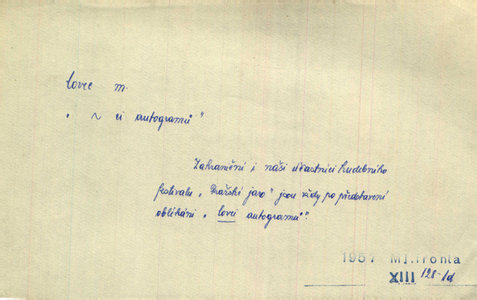 lovec m.
„ ~ ci autogramů"
Zahraniční i naši účastníci hudebního
festivalu „Pražské jaro" jsou vždy po představení
obléháni „lovci autogramů".
195 Ml. fronta
XIII 128-1d